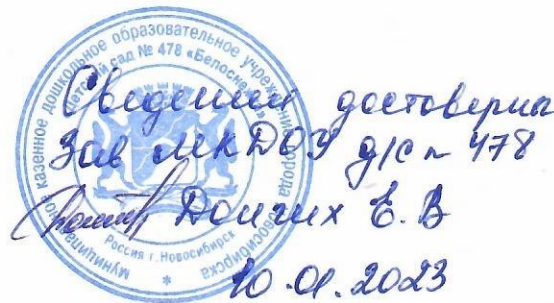 муниципальное казенное дошкольное образовательное учреждение города Новосибирска
"Детский сад № 478 «Белоснежка»"
Россия г. Новосибирск
Сведения достоверны
Зав МКДОУ д/с № 478
Долгих Е. В
10.01.2023